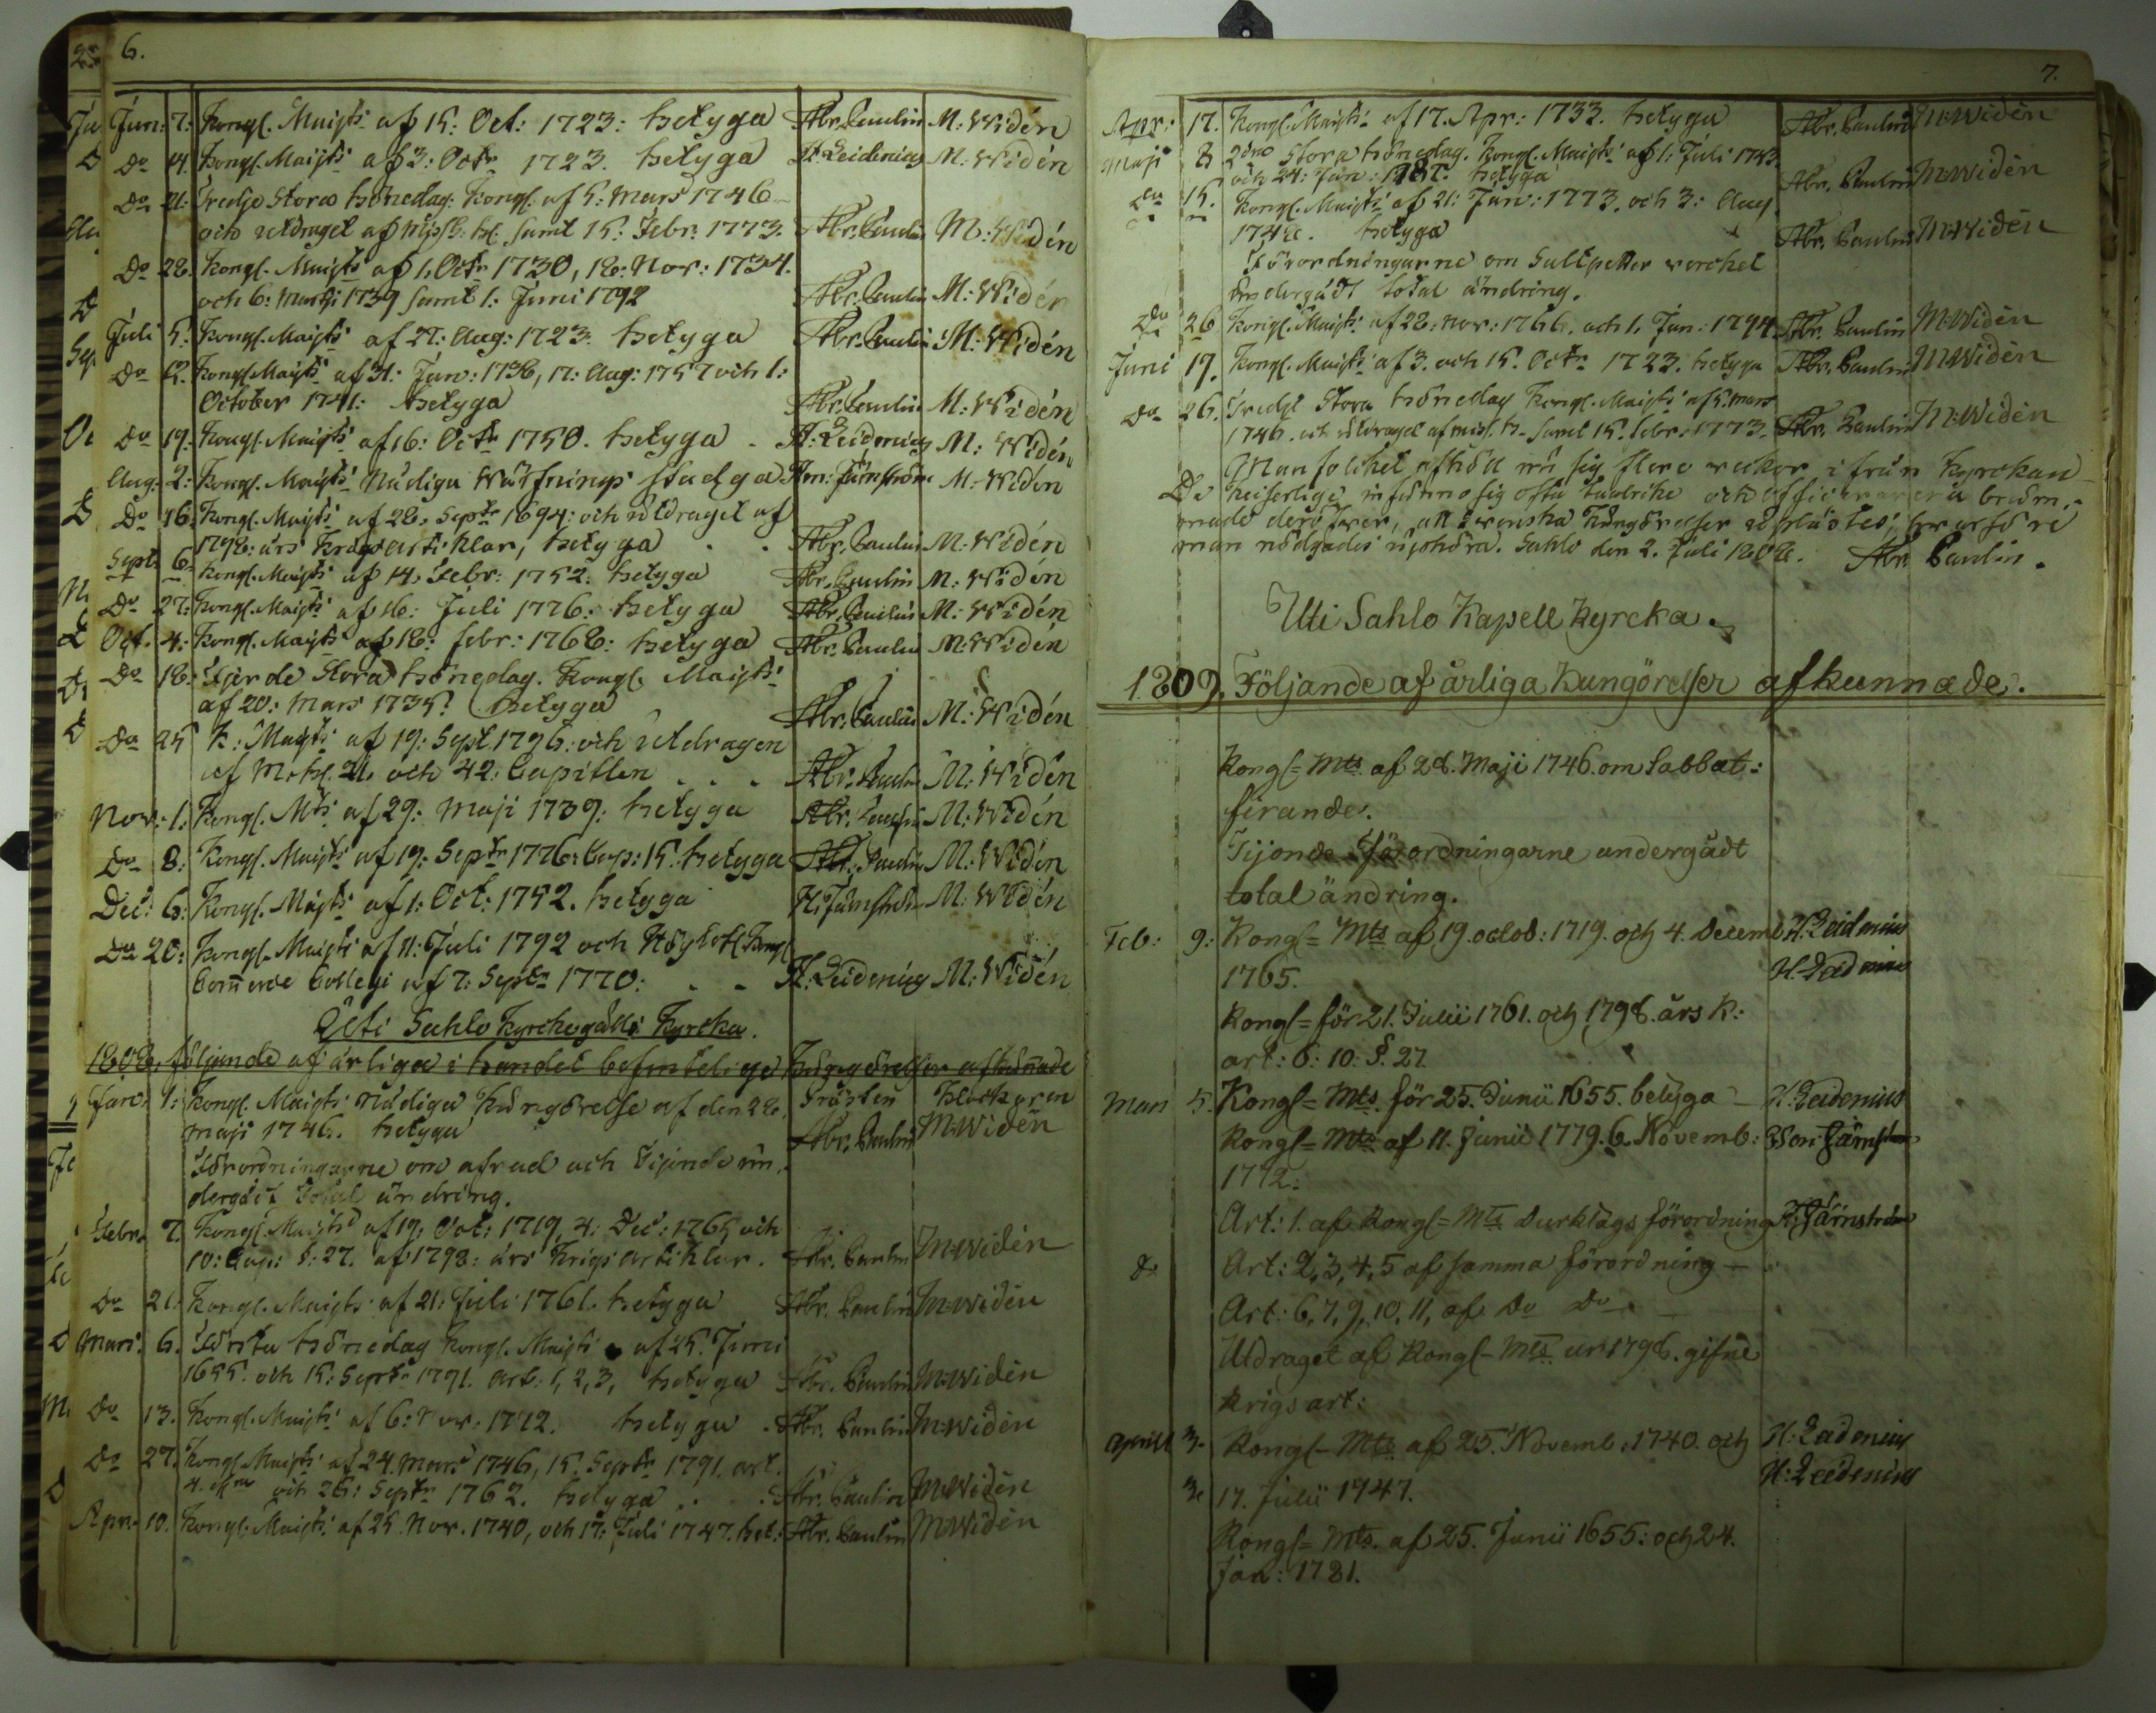 6.
Jun: 7: Kongl. Maijts af 15: Oct: 1723: betyga Abr. Paulin M: Widén
Do 14. Kongl. Maijts af 3: Octr 1723. betyga H. Leidenius M: Widén
Do 21: Tredje Stora bönedag: Kongl. af 5: Mars 1746
och utdraget af samt 15: Febr: 1773. Abr. Paulin M: Widén
Do 28. Kongl. Maijts af 1. Octr 1730, 18: Nov: 1734.
och 6: Martji 1739 samt 1: Juni 1792 Abr. Paulin M: Widén
Juli 5: Kongl. Maijts af 27: Aug: 1723. betyga Abr. Paulin M: Widén
Do 12. Kongl. Maijts af 31: Jan: 1736, 17: Aug: 1757 och 1:
October 1741: betyga Abr. Paulin M: Widén
Do 19. Kongl. Maijts af 16: Octr 1750. betyga H. Leidenius M: Widén
Aug. 2: Kongl. Maijts Nådiga Wärfnings stadga Am: Järnström M: Widén
Do 16: Kongl. Maijts af 28. Septr 1694: och utdraget af
1798: års Krigs artiklar, betyga Abr. Paulin M: Widén
Sept. 6: Kongl. Maijts af 14. Febr: 1752: betyga Abr. Paulin M: Widén
Do 27: Kongl. Maijts af 16: Juli 1776: betyga Abr. Paulin M: Widén
Oct. 4: Kongl. Maijts af 18: febr: 1768: betyga Abr. Paulin M: Widén
Do 18: Fjerde Stora bönedag. Kongl. Maijts
af 20: Mars 1735: betyga Abr. Paulin M: Widén
Do 25 K: Maijts af 19: Sept 1796: och utdragen
af 21. och 42: Capitlen Abr. Paulin M: Widén
Nov: 1: Kongl. Mts af 29: Maji 1739: betyga Abr. Paulin M: Widén
Do 8: Kongl. Maijts af 19: Septr 1776: Cap: 15. betyga Abr. Paulin M: Widén
Dec: 6: Kongl. Maijts af 1: Oct: 1752. betyga H. Järnström M: Widén
Do 20: Kongl. Maijts af 11: Juli 1792 och Kongl.
Com̄erce Collegii af 7: Septr 1770: H: Leidenius M: Widén
Uti Sahlo Kyrckogälls Kyrcka.
1808, följande af årliga i handel befintelige Kungörelser afkun̄ade
Jan: 1: Kongl. Maijts nådiga Kungörelse af den 28. Prästen Klockaren
Maji 1746. betyga Abr. Paulin M: Widén
Förordningarne om afrad och Tijonde un-
dergådt total ändring.
Febr. 7. Kongl. Maijts af 19: Oct: 1719, 4: Dec: 1765 och
10: Cap: §: 27. af 1798: års Krigs artiklar. Abr. Paulin M: Widén
Do 21. Kongl. Maijts af 21: Juli 1761. betyga Abr. Paulin M: Widén
Mars. 6. Första bönedag Kongl. Maijts af 25. Juni
1655. och 15: Septr 1791. art: 1, 2, 3, betyga Abr. Paulin M: Widén
Do 13. Kongl. Maijts af 6: Nov: 1772. betyga Abr. Paulin M: Widén
Do 27. Kongl. Maijts af 24. Mars 1746, 15. Septr 1791. art.
4. och 26: Septr 1762. betyga Abr. Paulin M: Widén
Apr. 10. Kongl. Maijts af 25. Nov. 1740, och 17: Juli 1747. bet: Abr. Paulin M: Widén
7.
Apr: 17. Kongl. Maijts af 17. Apr: 1733. betyga Abr. Paulin M: Widén
Maji 8 2dre Stora bönedag. Kongl. Maijts af 1: Juli 1743
och 24: Jan: 1781. betyga Abr. Paulin M: Widén
Do 15. Kongl. Maijts af 21: Jan: 1773. och 3: Aug.
1748. betyga Abr. Paulin M: Widén
Förordningarne om Saltpetter wercket
undergådt total ändring.
Do 26 Kongl. Maijts af 28: Nov: 1766. och 1. Jun: 1794 Abr. Paulin M: Widén
Juni 19. Kongl. Maijts af 3. och 15. Octr 1723. betyga Abr. Paulin M: Widén
Do 26. Tredje Stora bönedag Kongl. Maijts af 5. Mars
1746. och utdraget af samt 15. Febr: 1773. Abr. Paulin M: Widén
Manfolcket afhöll nu sig flere weckor ifrån Kyrckan
De Keiserlige infunno sig ofta talrike och
deröfwer, att Swenska Kungörelser uplästes; hwarföre
man nödgades uphöra. Sahlo den 2. Juli 1808. Abr. Paulin.
Uti Sahlo Kapell Kyrcka.
1809. Följande af årliga Kungörelser afkunnade.
Kongl= Mts af 28. Maji 1746. om Sabbat:
firande.
Tijonde Förordningarne undergådt
total ändring.
Feb: 9: Kongl= Mts af 19. octob: 1719. och 4. Decemb H. Leidenius
1765. H. Leidenius
Kongl= för 21. Julii 1761. och 1798. års K:
art: 6: 10: §. 27.
Mars 5. Kongl= Mts. för 25. Junii 1655. betyga H. Leidenius
Kongl= Mts af 11. Junii 1779. 6. Novemb: Järnström
1772.
Art: 1. af Kongl= Mts Durktågs förordning H. Järnström
Do Art: 2, 3, 4, 5 af samma förordning
Art: 6, 7, 9, 10, 11, af Do Do
Utdraget af Kongl= Mts ur 1798. gifne
krigs art:
Aprill 3. Kongl= Mts af 25. Novemb: 1740. och H: Leidenius
17. Julii 1747. H: Leidenius
Kongl= Mts. af 25. Junii 1655: och 24.
Jan: 1781.